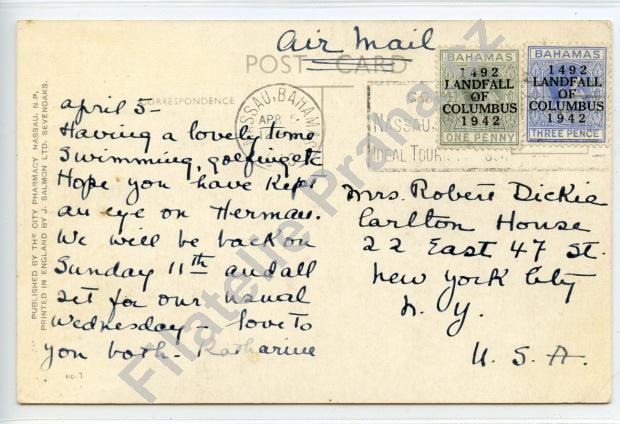 Air Mail
POST CARD
CORRESPONDENCE
april 5-
Having a lovely time
Swimming, golfing etc
Hope you have kept
an eye on Herman.
We will be back on
Sunday 11th and all
set for our usual
Wednesday - love to
you both - Katharine
NO. 7
PUBLISHED BY THE CITY PHARMACY NASSAU, N.P.
PRINTED IN ENGLAND BY J. SALMON LTD. SEVENOAKS.
NASSAU, BAHAMAS
APR 5
NASSAU,
IDEAL TOURIST
BAHAMAS
1492
LANDFALL
OF
COLUMBUS
1942
ONE PENNY
BAHAMAS
1492
LANDFALL
OF
COLUMBUS
1942
THREE PENCE
Mrs. Robert Dickie
Carlton House
22 East 47 St.
New York City
N. Y.
U. S. A.
Filatelie Praha.cz